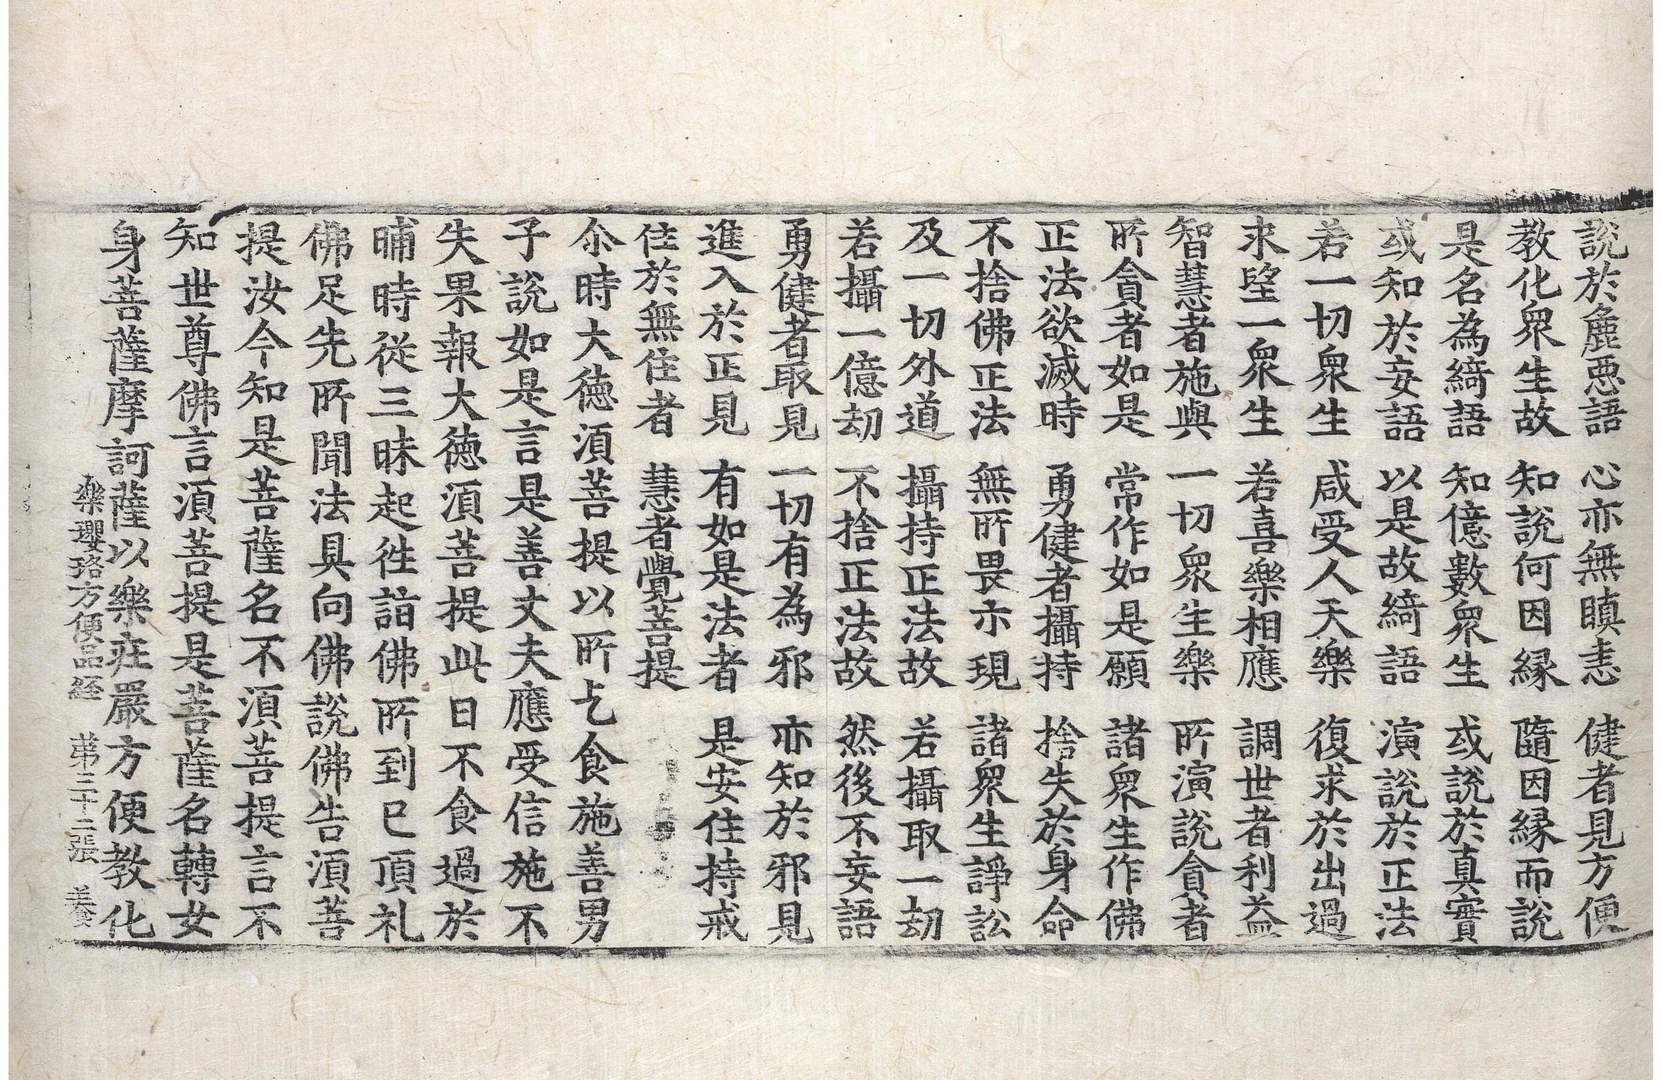 說於麁惡語 心亦無瞋恚 健者見方便
教化衆生故 知說何因縁 隨因縁而說
是名為綺語 知億數衆生 或說於真實
或知於妄語 以是故綺語 演說於正法
若一切衆生 咸受人天樂 復求於出過
求望一衆生 若喜樂相應 調世者利益
智慧者施與 一切衆生樂 所演說貪者
所貪者如是 常作如是願 諸衆生作佛
正法欲滅時 勇健者攝持 捨失於身命
不捨佛正法 無所畏示現 諸衆生諍訟
及一切外道 攝持正法故 若攝取一劫
若攝一億劫 不捨正法故 然後不妄語
勇健者取見 一切有為邪 亦知於邪見
進入於正見 有如是法者 是安住持戒
住於無住者 慧者覺菩提
尒時大德湏菩提以所乞食施善男
子說如是言是善丈夫應受信施不
失果報大德湏菩提此日不食過於
晡時從三昧起往詣佛所到已頂礼
佛足先所聞法具向佛說佛告湏菩
提汝今知是菩薩名不湏菩提言不
知世尊佛言湏菩提是菩薩名轉女
身菩薩摩訶薩以樂莊嚴方便教化
樂瓔珞方便品経 第三十二張 養